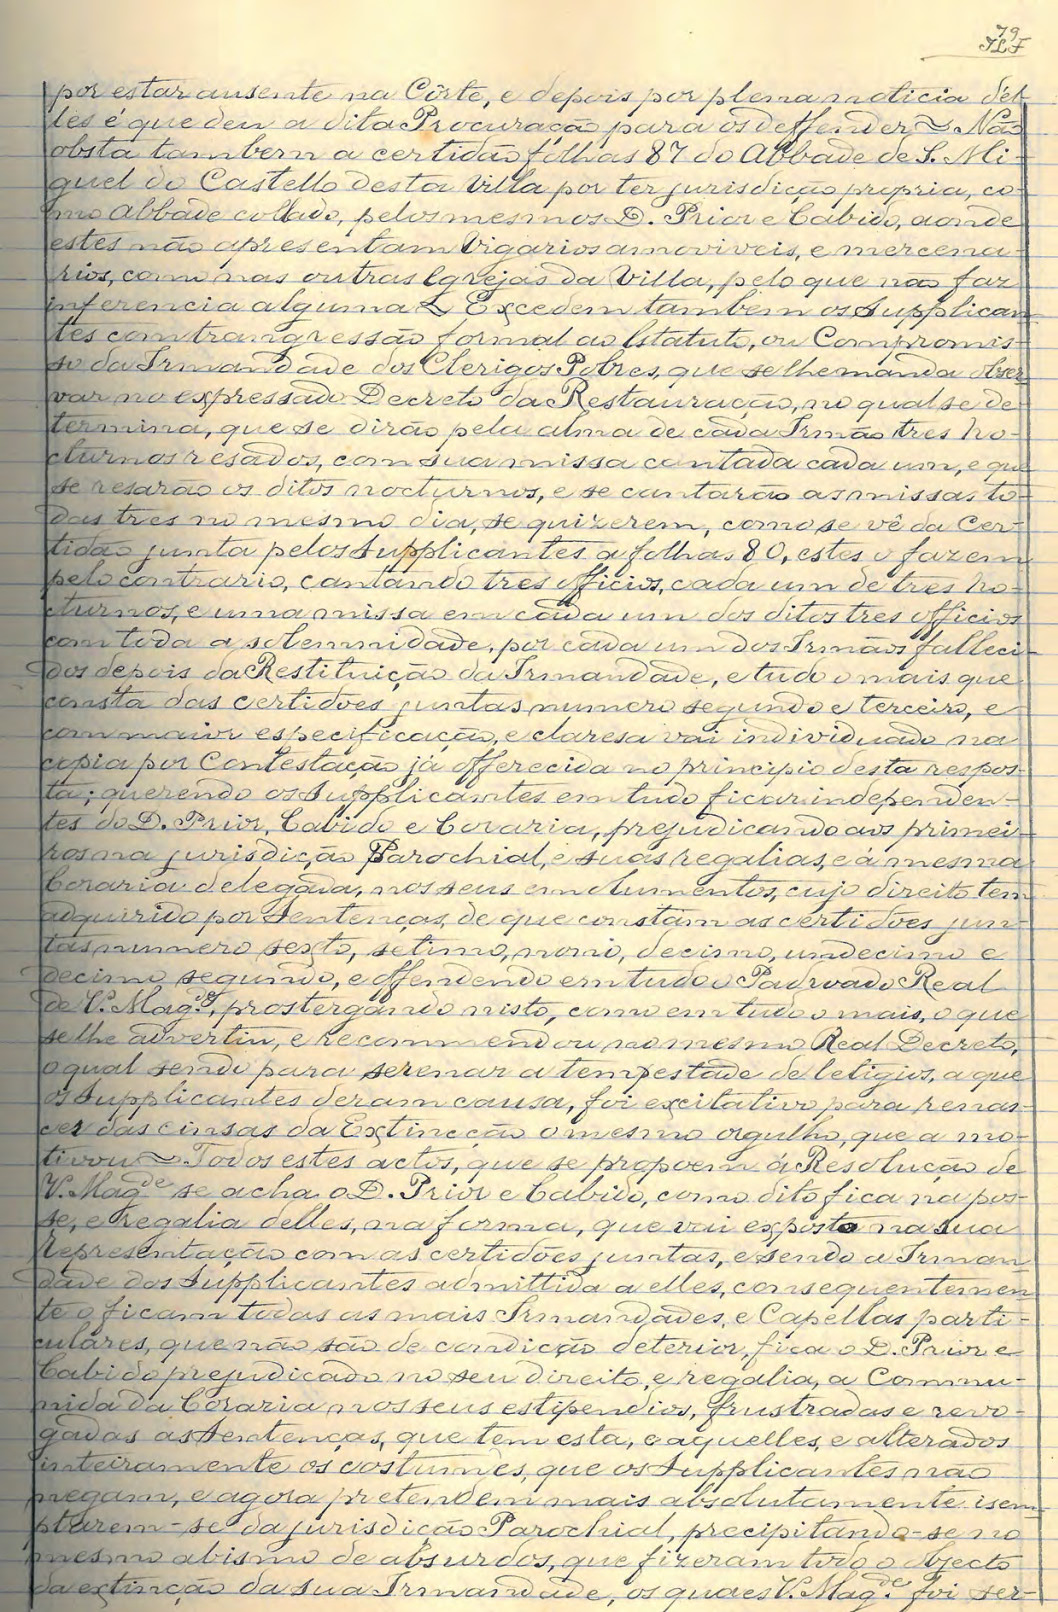 79
JLF
por estar ausente na Côrte, e depois por plena noticia dél-
les é que deu a dita Procuração para os deffender ~ Não
obsta tambem a certidão folhas 87 do Abbade de S. Mi-
guel do Castello desta Villa por ter jurisdicção propria, co-
mo Abbade collado, pelos mesmos D. Prior e Cabido, aonde
estes não apresentam Vigarios amoviveis, e mercena-
rios, como nas outras Egrejas da Villa, pelo que não faz
inferencia alguma ~ Excedem tambem os Supplican
tes com trangressão formal ao Istatuto, ou Compromis-
so da Irmandade dos Clerigos Pobres, que se lhe manda obser
var no expressado Decreto da Restauração, no qual se de
termina, que se dirão pela alma de cada Irmão tres no-
cturnos resados, com sua missa cantada cada um, e que
se resarão os ditos nocturnos, e se cantarão as missas to-
das tres no mesmo dia, se quizerem, como se vê da Cer-
tidão junta pelos Supplicantes a folhas 80, estes o fazem
pelo contrario, cantando tres officios, cada um de tres no-
cturnos, e uma missa em cada um dos ditos tres officios
com toda a solemnidade, por cada um dos Irmãos falleci-
dos depois da Restituição da Irmandade, e tudo o mais que
consta das certidões juntas numero segundo e terceiro, e
com maior especificação, e claresa vai individuado na
copia por Contestação já offerecida no principio desta respos-
ta; querendo os Supplicantes em tudo ficar independen-
tes do D. Prior, Cabido e Coraria, prejudicando aos primei-
ros na jurisdicção Parochial, e suas regalias, e á mesma
Coraria delegada, nos seus emolumentos, cujo direito tem
adquirido por Sentenças, de que constam as certidões jun-
tas numero sexto, setimo, nono, decimo, undecimo e
decimo segundo, e offendendo em tudo o Padroado Real
de V. Mag.de, prostergando nisto, como em tudo o mais, o que
se lhe advertiu, e recommendou no mesmo Real Decreto,
o qual sendo para serenar a tempestade de letigios, a que
os Supplicantes deram causa, foi excitativo para renas-
cer das cinsas da Extincção o mesmo orgulho, que a mo-
tivou ~ Todos estes actos, que se propoem á Resolução de
V. Mag.de se acha o D. Prior e Cabido, como dito fica na pos-
se, e regalia delles, na forma, que vai exposto na sua
representação com as certidões juntas, e sendo a Irman
dade dos Supplicantes admittida a elles, consequentemen
te o ficam todas as mais Irmandades, e Capellas parti-
culares, que não são de condicção deterior, fica o D. Prior e
Cabido prejudicado no seu direito, e regalia, a Commu-
nidada Coraria nos seus estipendios, frustradas e revo-
gadas as Sentenças, que tem esta, e aquelles, e alterados
inteiramente os costumes, que os Supplicantes não
negam, e agora pretendem mais absolutamente isem-
ptarem-se da jurisdicção Parochial, precipitando-se no
mesmo abismo de absurdos, que fizeram todo o objecto
da extincção da sua Irmandade, os quaes V. Mag.de foi ser-